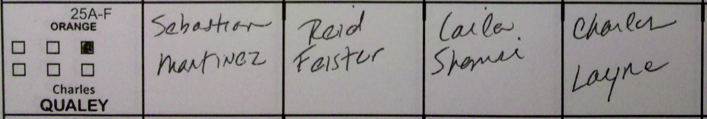 25A-F
ORANGE
Charles
QUALEY
Sebastian
Martinez
Reid
Feister
Laila
Shamsi
Charles
Layne